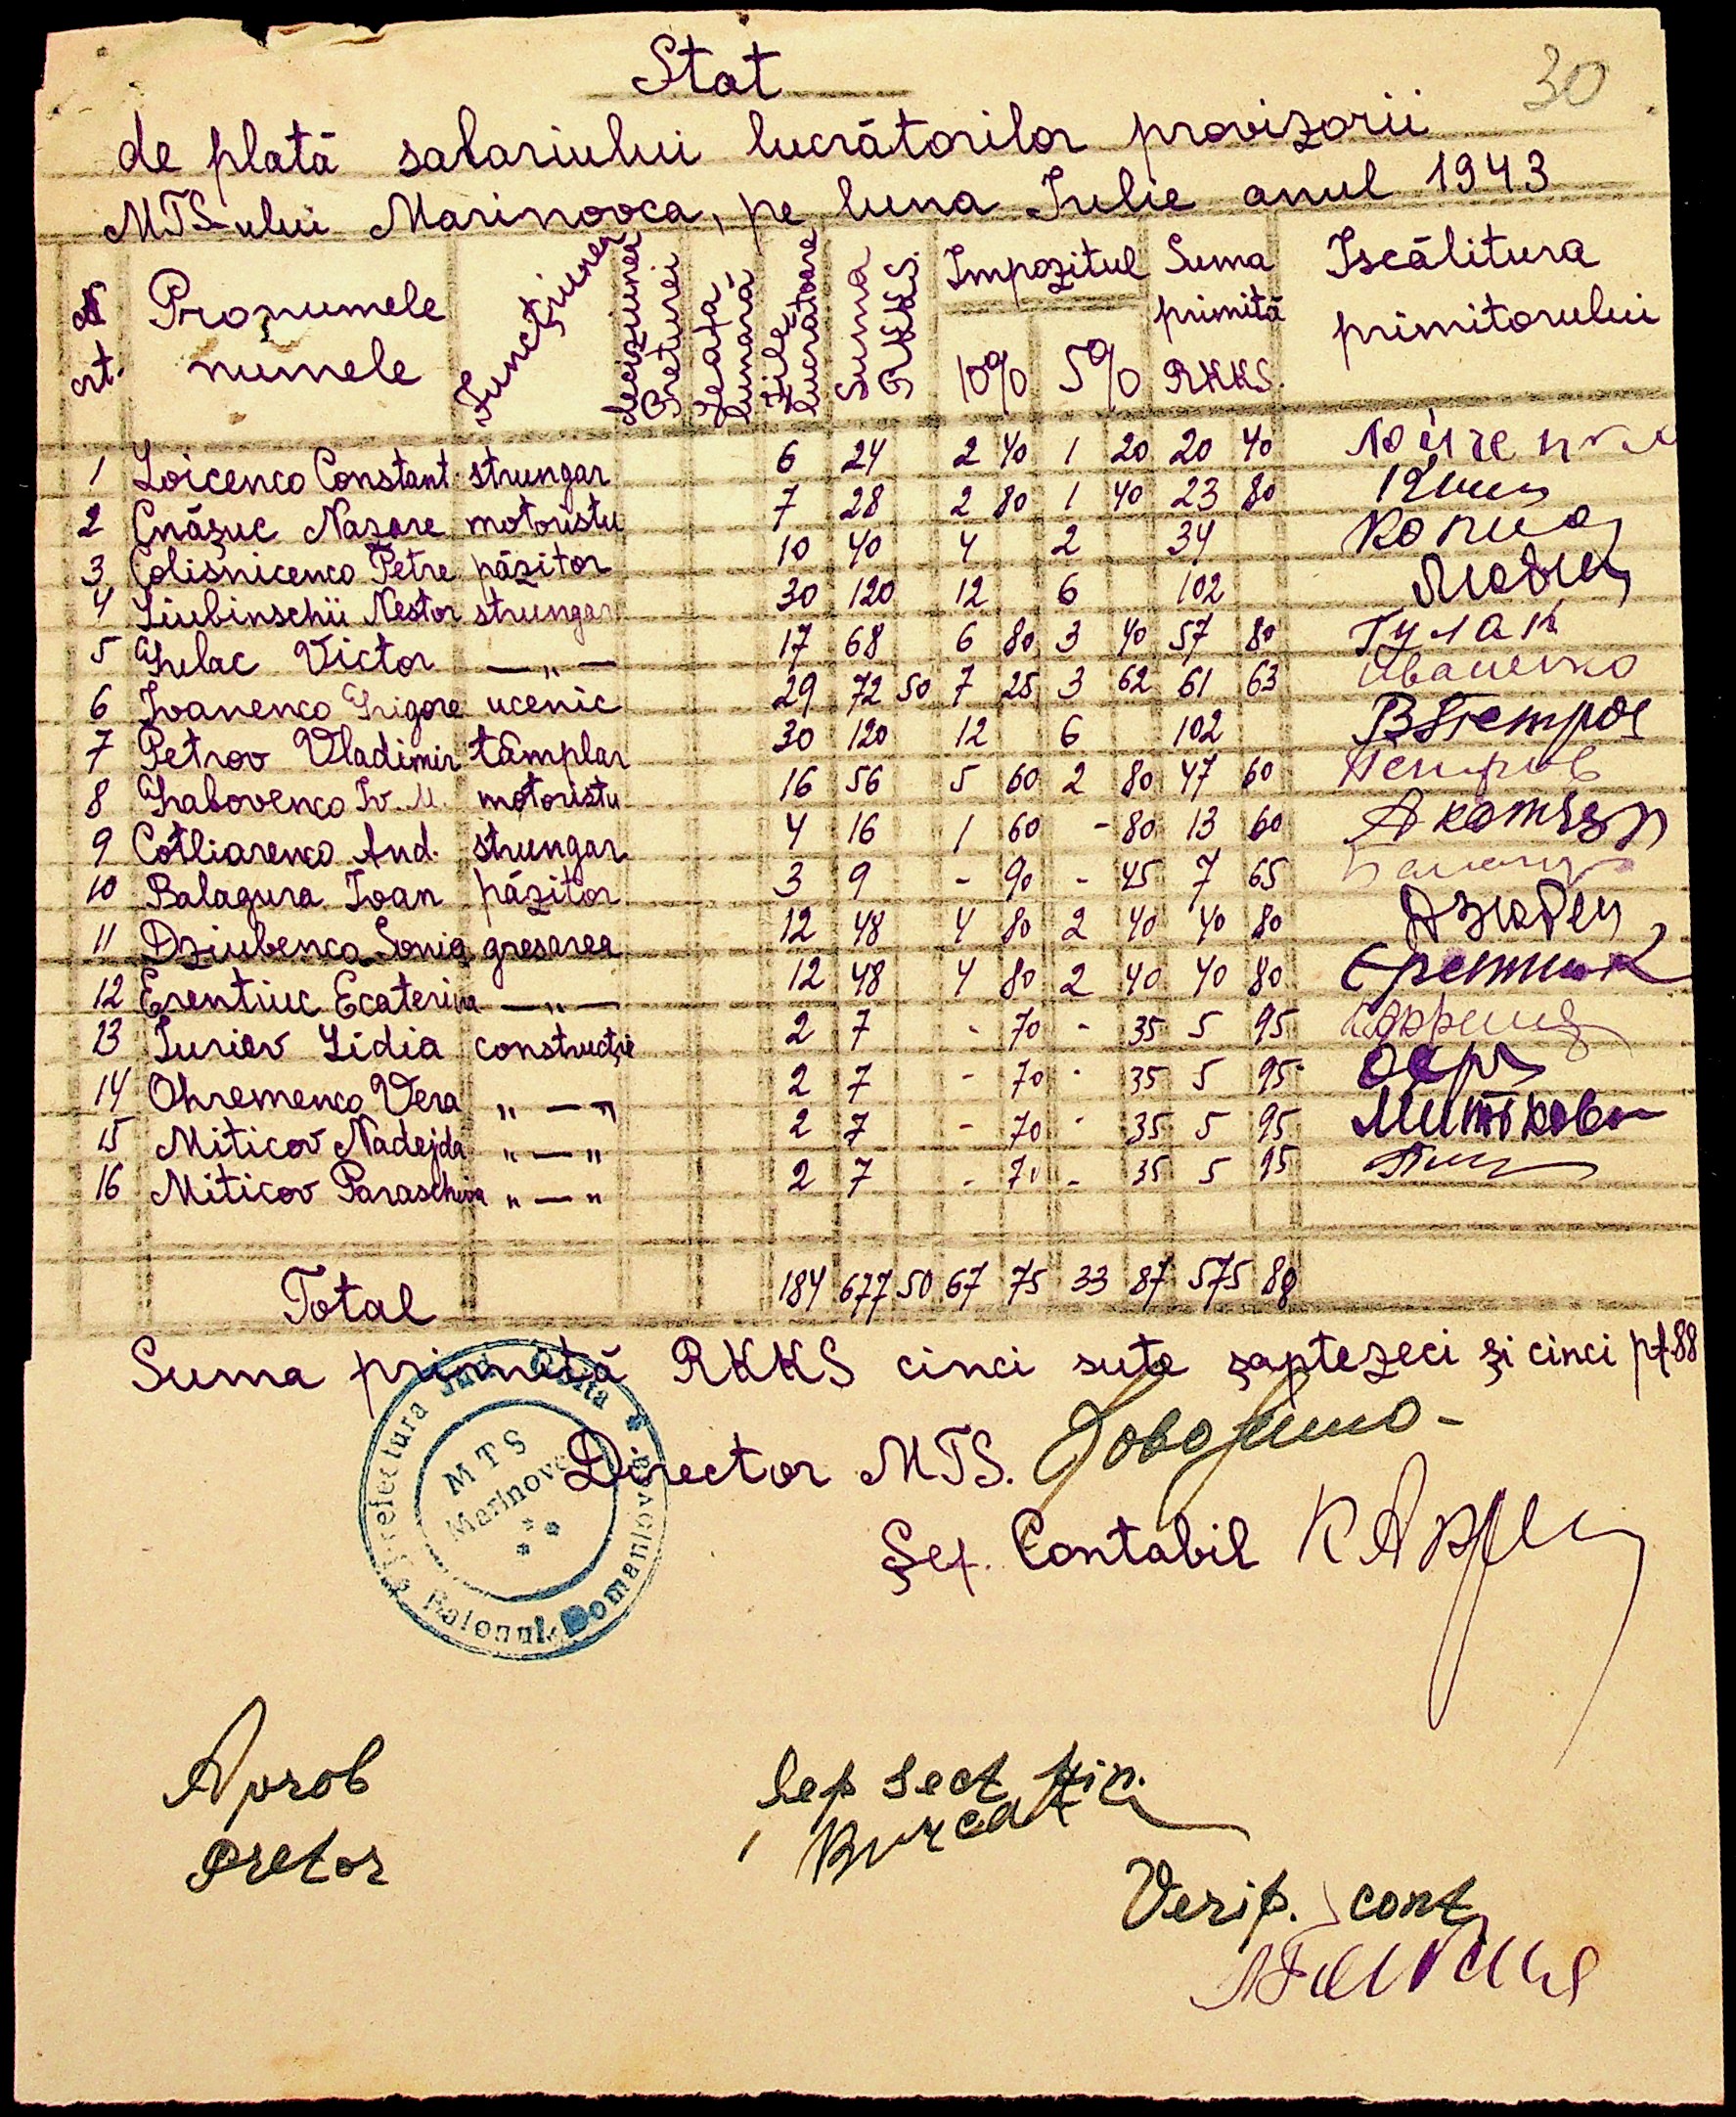 30
Stat
de plată salariului lucrătorilor provizorii
MTS-ului Marinovca, pe luna Iulie anul 1943
№ crt. Pronumele numele Funcțiunea deciziunea Preturei Leafa lunară Zile lucrătoare Suma RKKS. Impozitul 10% 5% Suma primită RKKS. Iscălitura primitorului
1 Loicenco Constant. strungar 6 24 2 40 1 20 20 40
2 Cnăşuc Nazare motoristu 7 28 2 80 1 40 23 80
3 Colisnicenco Petre păzitor 10 40 4 2 34
4 Liubinschii Nestor strungar 30 120 12 6 102 Любин
5 Ghulac Victor — „ — 17 68 6 80 3 40 57 80 Гулак
6 Ivanenco Grigore ucenic 29 72 50 7 25 3 62 61 63 Иваненко
7 Petrov Vladimir tâmplar 30 120 12 6 102 ВПетров
8 Ghabovenco Iv. M. motoristu 16 56 5 60 2 80 47 60 Петров
9 Cotliarenco And. strungar 4 16 1 60 - 80 13 60
10 Balagura Ioan păzitor 3 9 - 90 - 45 7 65
11 Dziubenco Sonia gresarea 12 48 4 80 2 40 40 80 Дзюбен
12 Erentiuc Ecaterina — „ — 12 48 4 80 2 40 40 80 Ерентюк
13 Iuriev Lidia construcție 2 7 - 70 - 35 5 95
14 Ohremenco Vera „ — „ 2 7 - 70 - 35 5 95
15 Miticov Nadejda „ — „ 2 7 - 70 - 35 5 95 Митікова
16 Miticov Paraschiva „ — „ 2 7 - 70 - 35 5 95
Total 184 677 50 67 75 33 87 575 88
Suma primită RKKS cinci sute şaptezeci şi cinci pf. 88
Prefectura Jud. Golta
Raionul Domaniovca
MTS
Marinovca
Director MTS.
Şef. Contabil
Aprob
Pretor
Şef Sect. Fin.
Verif. cont